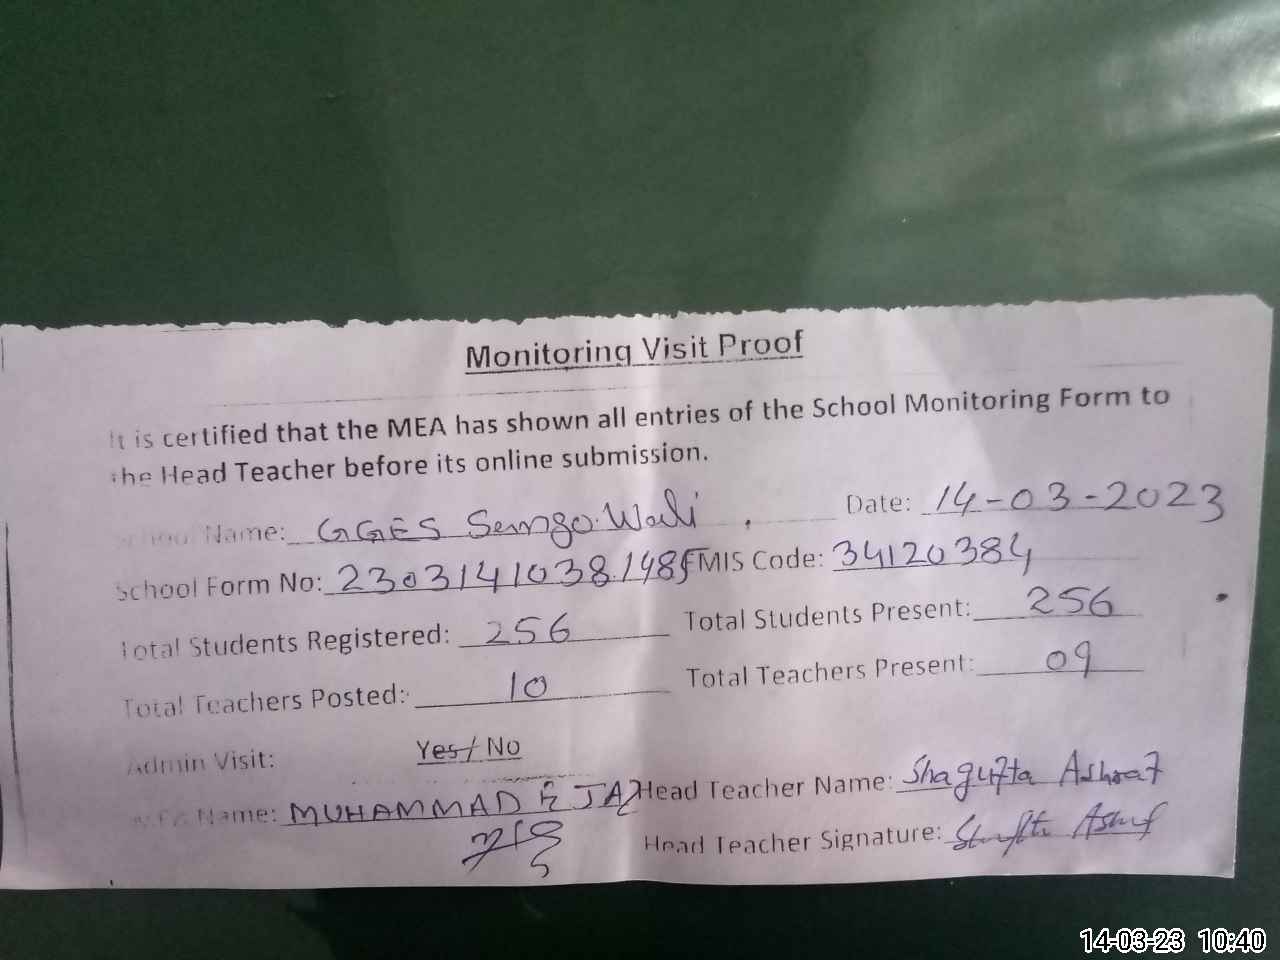 Monitoring Visit Proof
It is certified that the MEA has shown all entries of the School Monitoring Form to
the Head Teacher before its online submission.
School Name: GGES Wali Date: 14-03-2023
School Form No: 2303141038148 EMIS Code: 34120384
Total Students Registered: 256 Total Students Present: 256
Total Teachers Posted: 10 Total Teachers Present: 09
Admin Visit: Yes/ No
MEA Name: MUHAMMAD EJAZ Head Teacher Name: Shagufta Ashraf
Head Teacher Signature:
14-03-23 10:40